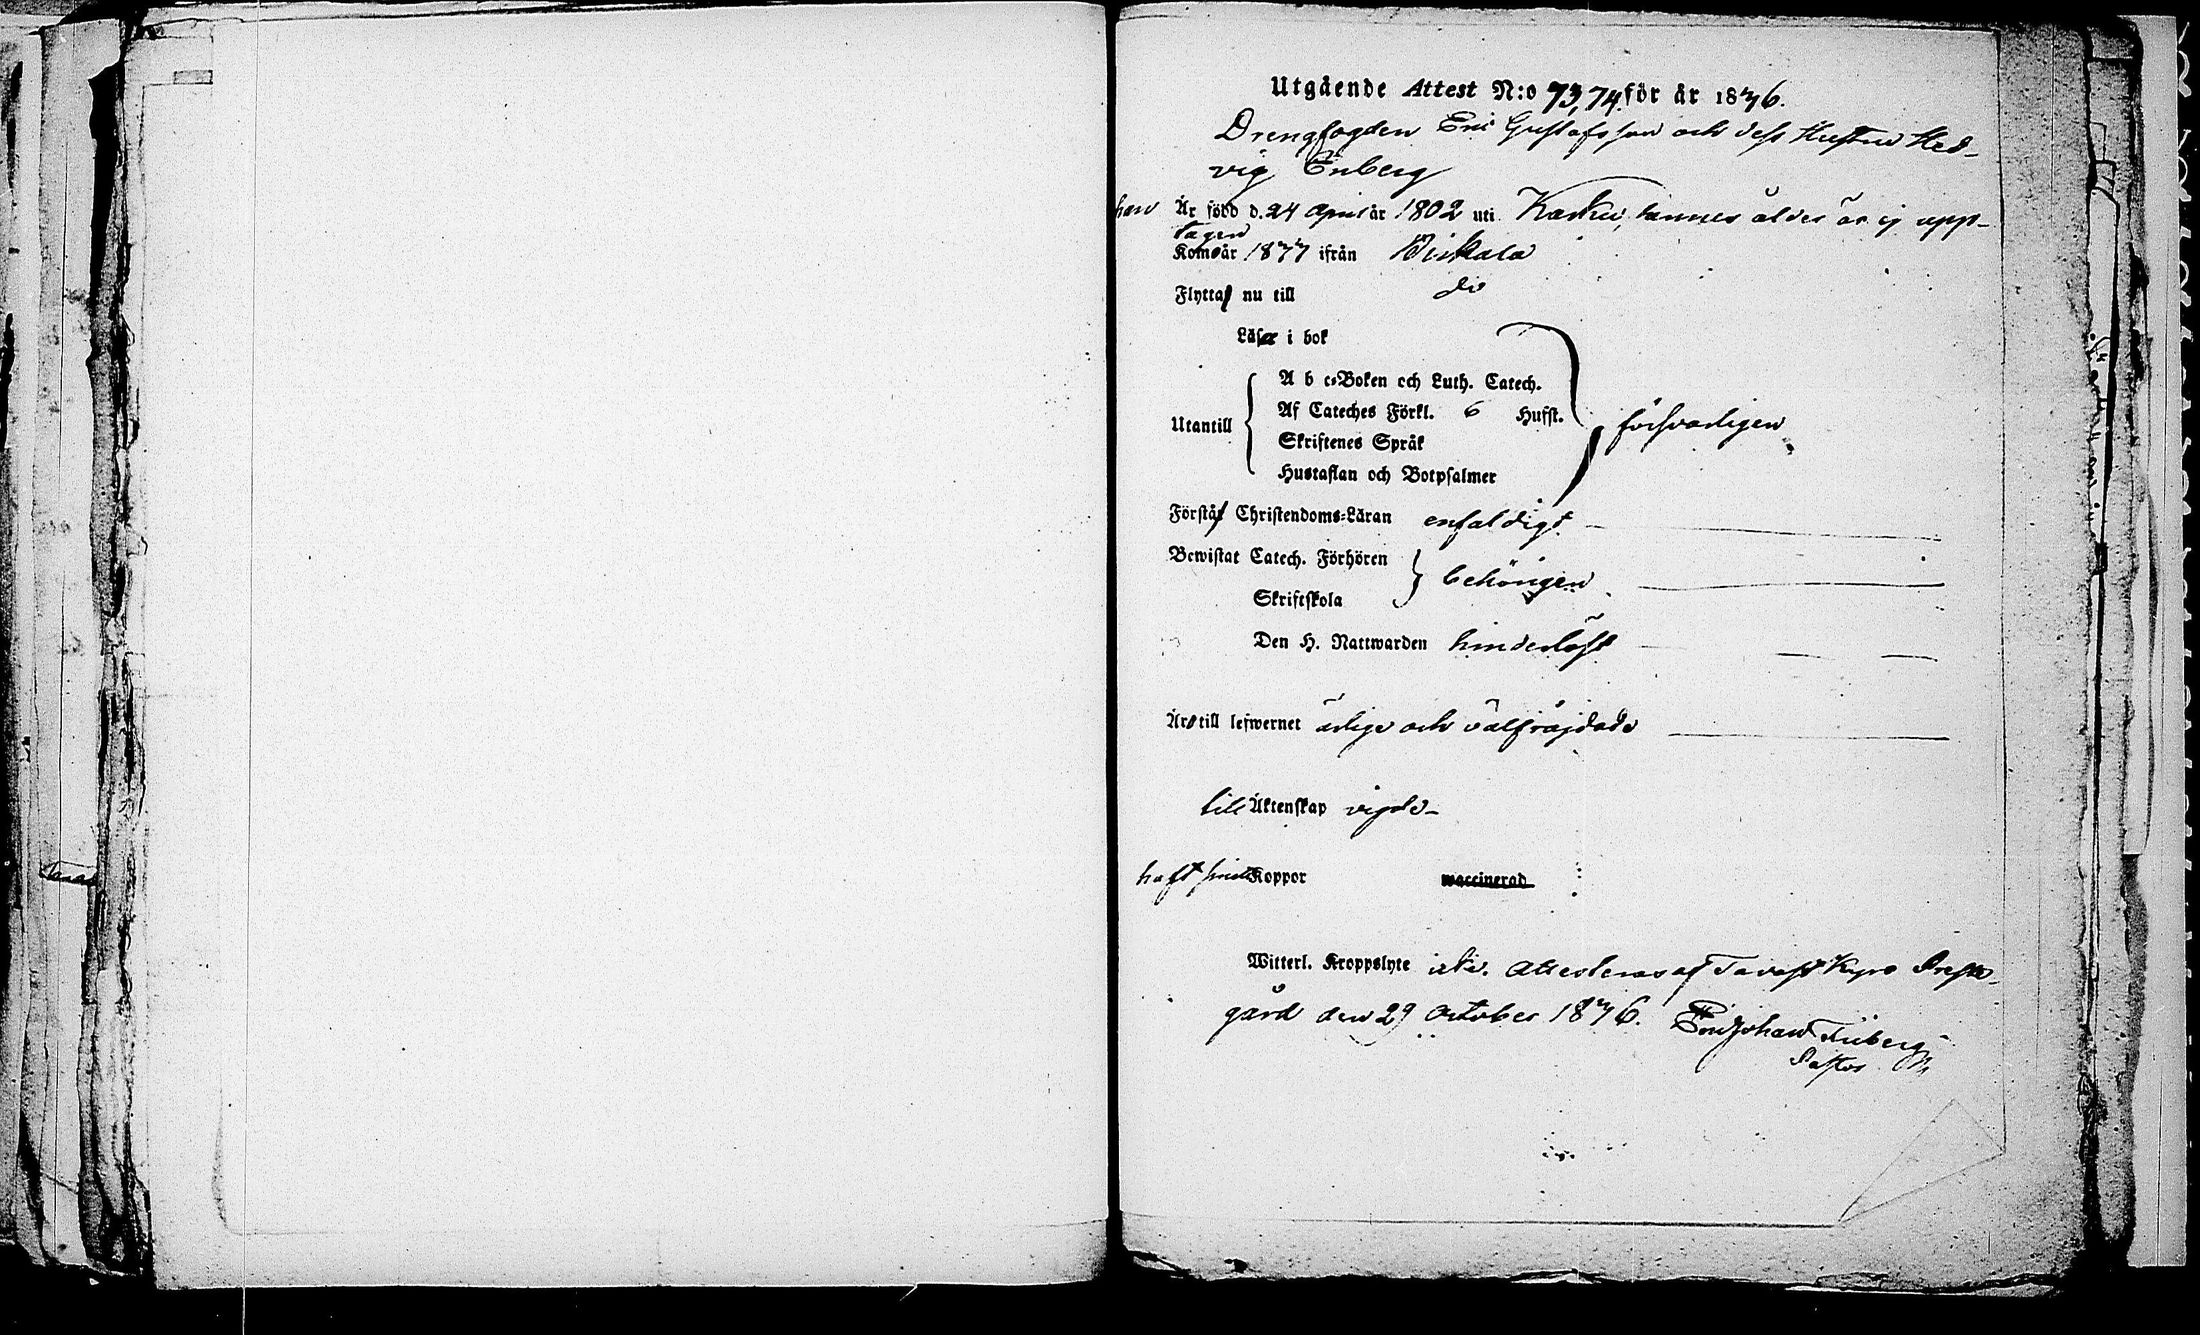 Utgående Attest N:o 73, 74. för år 1876.
Drengfogden Eric Gustafsson och dess Hustru Hed-
vig Enberg
han Är född d. 24 April år 1802 uti Karku, hennes ålder är ej upp-
tagen
Kom år 1877 ifrån Birkala
Flytta nu till do
Läsa i bok
A b c-Boken och Luth. Catech.
Utantill Af Cateches Förkl. 6 Hufst. försvarligen
Skriftenes Språk
Hustaflan och Botpsalmer
Förstå Christendoms-Läran enfaldigt
Bewistat Catech. Förhören behörigen
Skriftskola
Den H. Nattwarden hinderlöst
Är till lefwernet ärlige och välfräjdade
till Äktenskap vigde
haft Koppor waccinerad
Witterl. Kroppslyte icke. Attesteras af Tavast Kyro Preste-
gård den 29 October 1876. Johan
Pastor